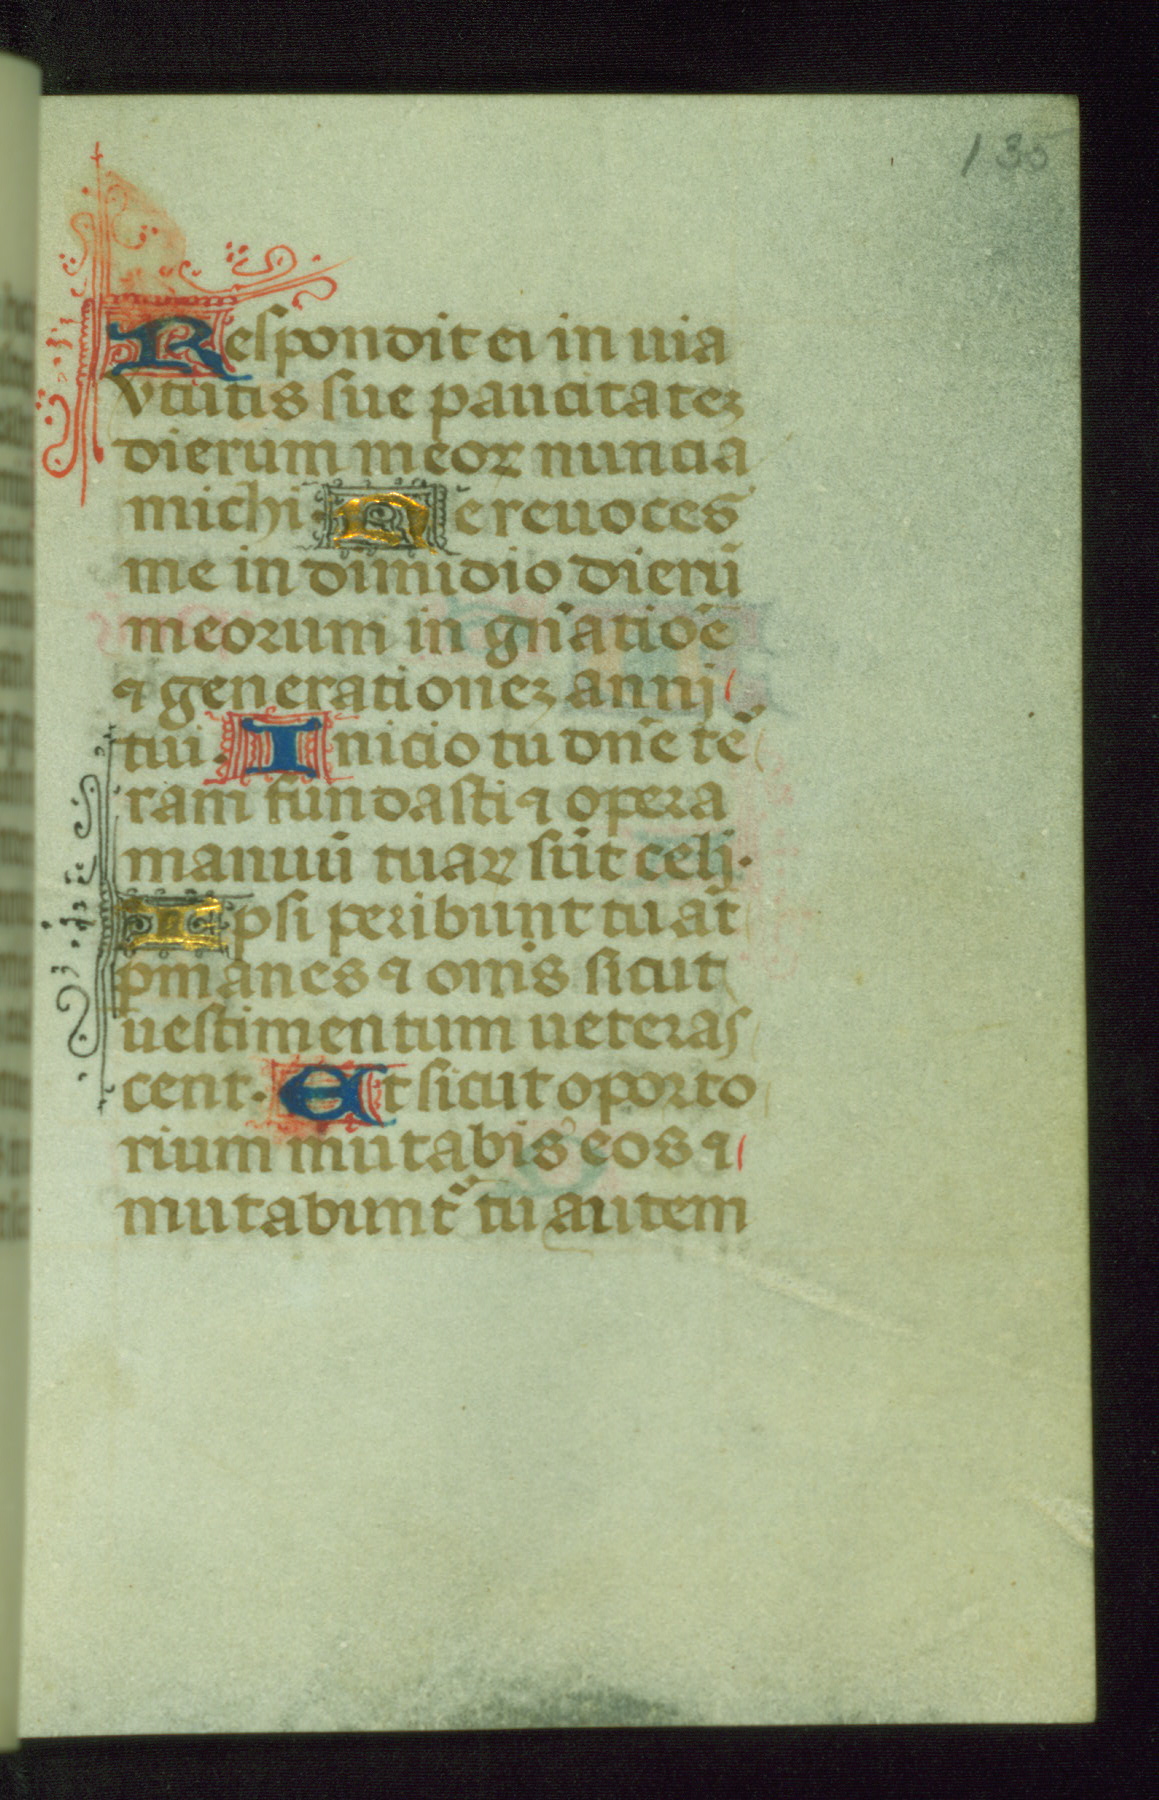 135
Respondit ei in uia
vtutis sue paucitateꝫ
dierum meoꝝ nuncia
michi. Ne reuoces
me in dimidio dierū
meorum in gn̄atiōe
⁊ generationeꝫ anni
tui. Inicio tu dn̄e ter̄
ram fundasti ⁊ opera
manuū tuaꝝ sūt celi.
Ipsi peribunt tu aūt
pmanes ⁊ om̄s sicut
uestimentum ueteras
cent. Et sicut oporto
rium mutabis eos ⁊
mutabunt᷑ tu autem